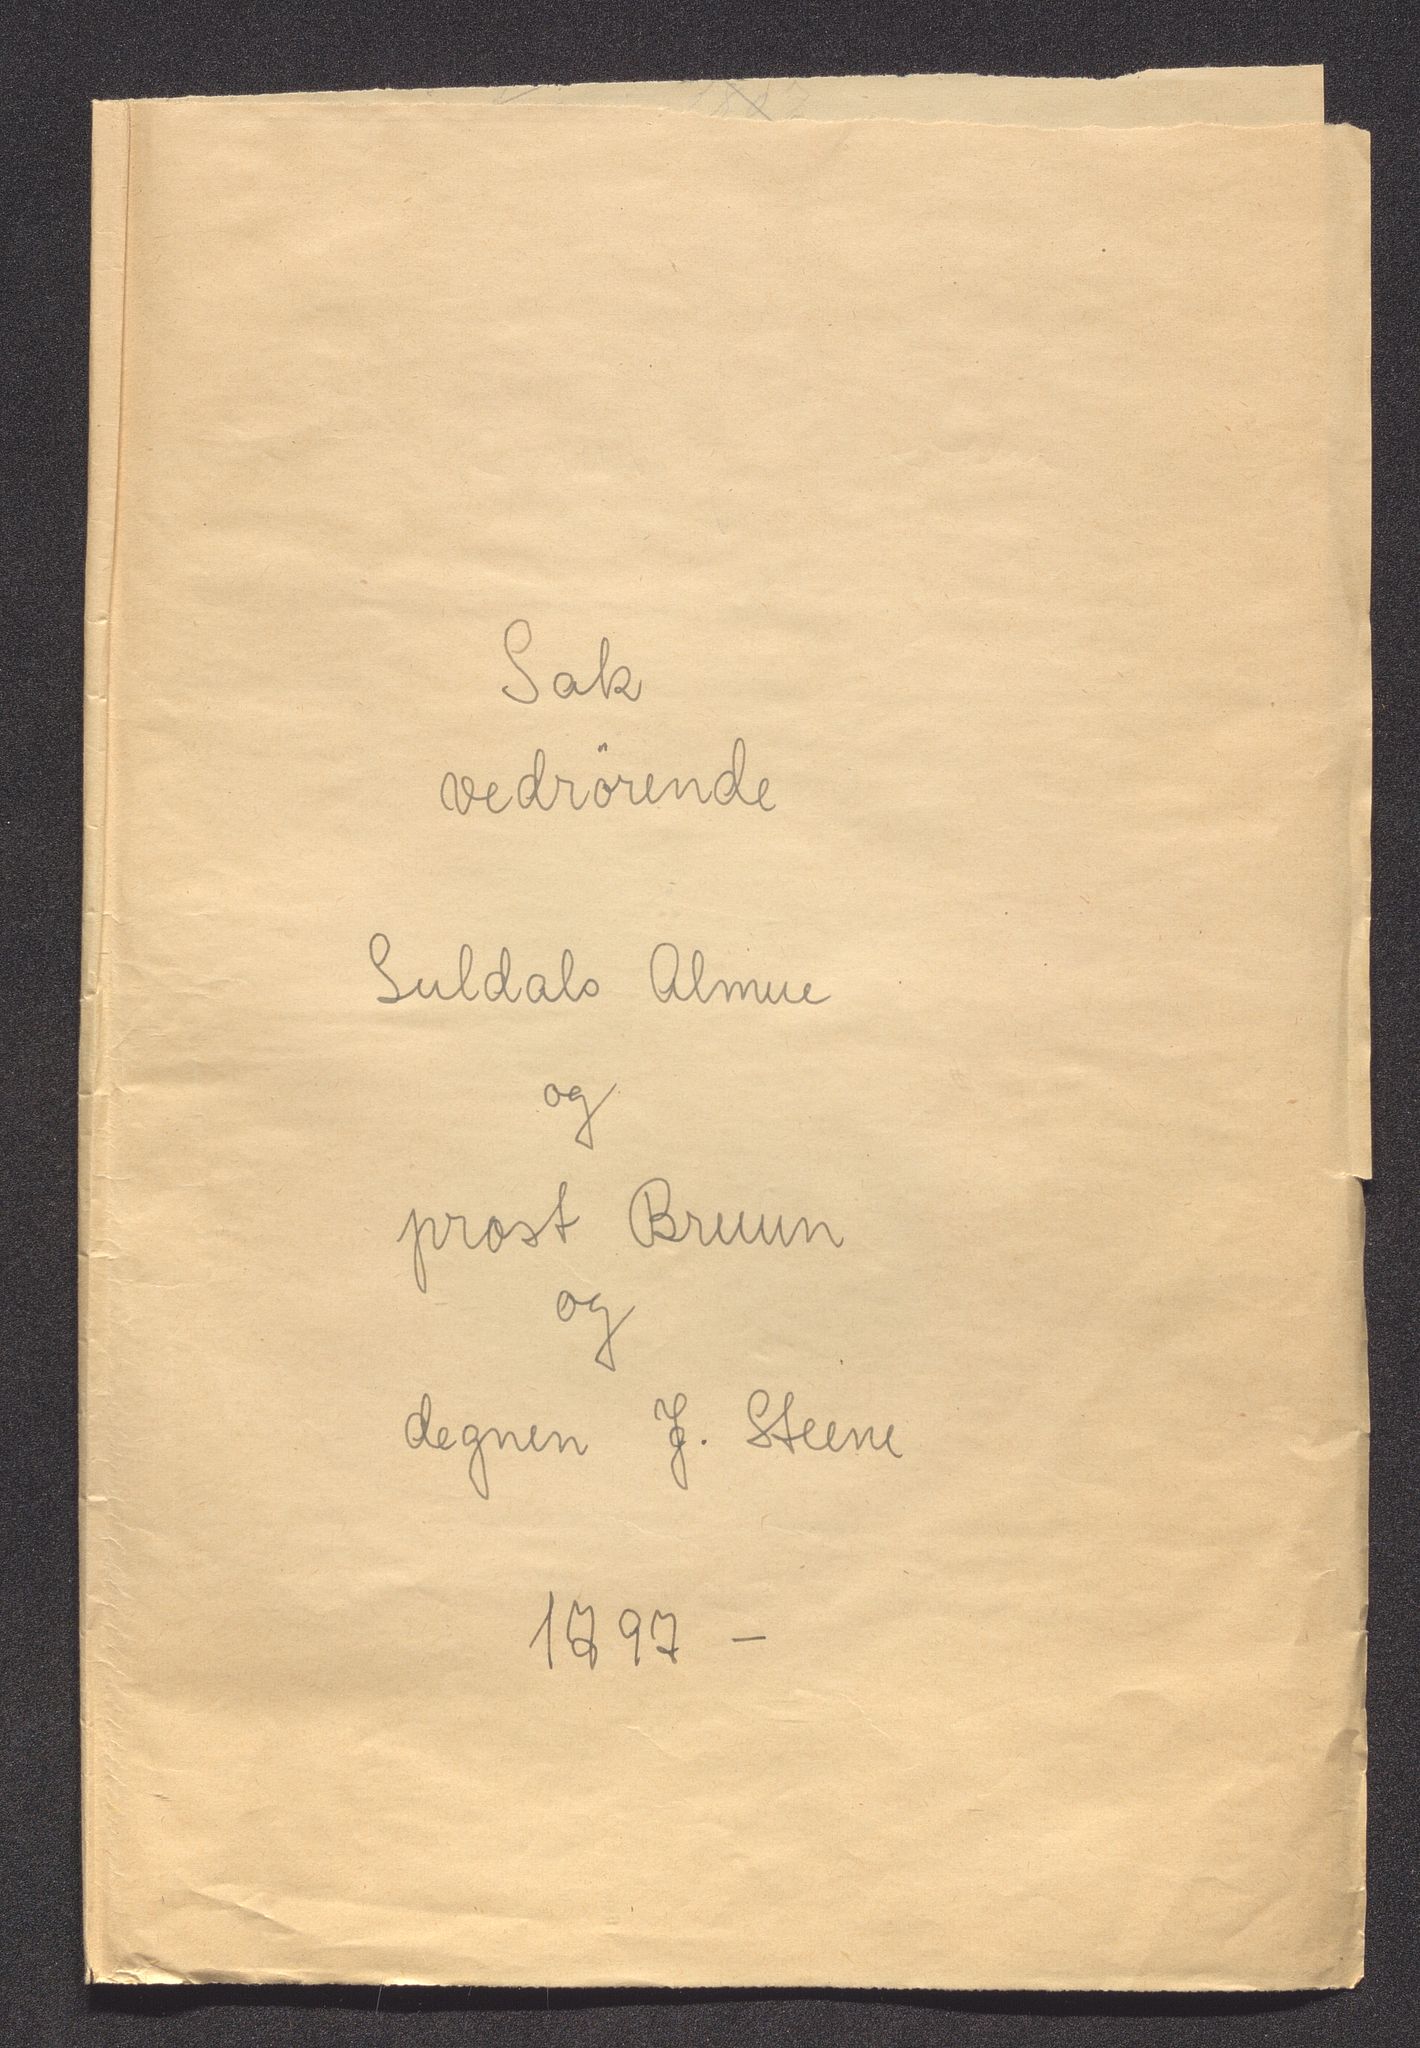 Sak
vedrörende
Suldals Almue
og
prost Bruun
og
degnen J. Steene
1797 -